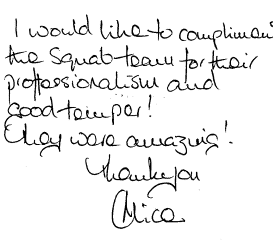 I would like to compliment
the Squab team for their
proffessionalism and
good temper!
They were amazing!
Thankyou
Mica